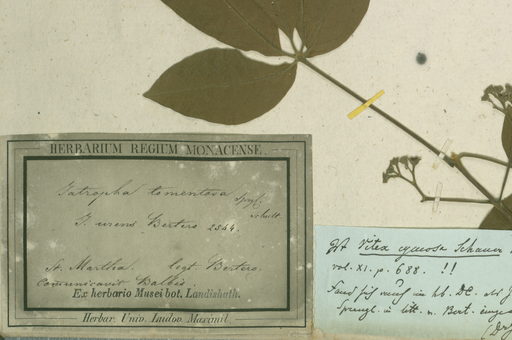 HERBARIUM REGIUM MONACENSE.
Jatropha tomentosa Spgl.
Schult
J. urens Bertero 2564.
St. Martha. legt. Bertero.
Communicavit Balbis.
Ex herbario Musei bot. Landishuth.
Herbar. Univ. Ludov. Maximil.
Ist Vitex cymosa Schauer
vol. XI. p. 688. !!
Fand sich auch im hb. DC. als J
Sprengl. in litt. n. Bert.